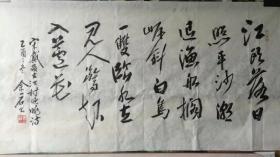 江頭落日
照平沙潮
退漁船擱
岸斜白鳥
一雙臨水立
見人驚起
入蘆花
宋戴復古江村晚眺詩
乙酉之冬